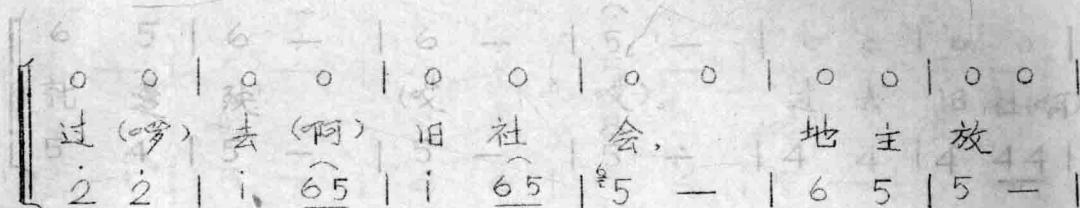 0 0 | 0 0 | 0 0 | 0 0 | 0 0 | 0 0 |
过(啰)去(啊)旧社会,地主放
2̇ 2̇ | i 65 | i 65 | 5 — | 6 5 | 5 — |